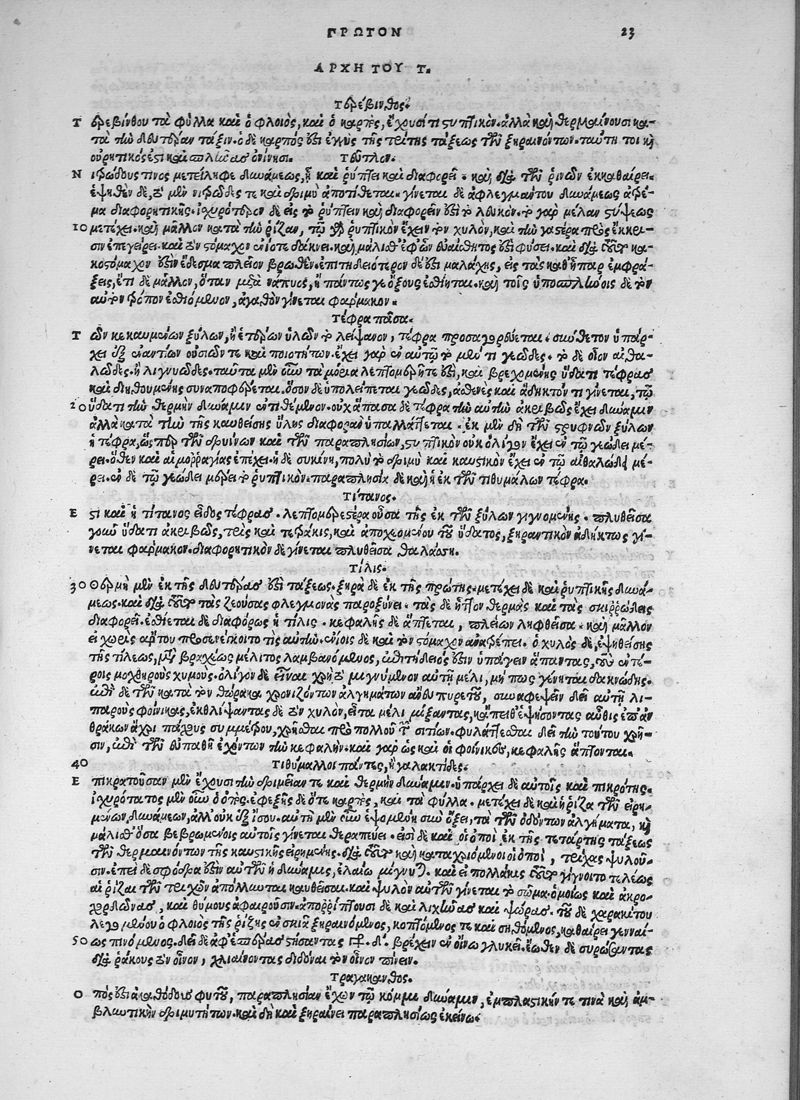 ΠΡΩΤΟΝ 23
ΑΡΧΗ ΤΟΥ Τ.
Τερέβινθος.
Τερεβίνθου τὰ φύλλα καὶ ὁ φλοιὸς, καὶ ὁ καρπὸς, ἔχουσί τι στυπτικὸν. ἀλλὰ καὶ θερμαίνουσι κα-
τὰ τὴν δευτέραν τάξιν. ὁ δὲ καρπὸς ἐστὶ ἐγγὺς τῆς τρίτης τάξεως τῶν ξηραινόντων. ταύτῃ τοι καὶ
οὐρητικός ἐστι καὶ σπλῆνας ὀνίνησι. Τεῦτλον.
Νιτρώδους τινος μετείληφε δυνάμεως, ᾗ καὶ ῥύπτει καὶ διαφορεῖ. καὶ διὰ τῶν ῥινῶν ἐκκαθαίρει.
ἑψηθὲν δὲ, τὸ μὲν νιτρῶδές τε καὶ δριμὺ ἀποτίθεται. γίνεται δὲ ἀφλεγμάντου δυνάμεως ἀτρέ-
μα διαφορητικῆς. ἰσχυρότερον δὲ εἰς τὸ ῥύπτειν καὶ διαφορεῖν ἐστὶ τὸ λευκὸν. τὸ γὰρ μέλαν στύψεως
10 μετέχει. καὶ μᾶλλον κατὰ τὴν ῥίζαν, τῷ δὲ ῥυπτικὸν ἔχειν τὸν χυλὸν, καὶ τὴν γαστέρα πρὸς ἔκκρι-
σιν ἐπεγείρει. καὶ τὸν στόμαχον ἐνίοτε δάκνει. καὶ μάλισθ' ἐφ' ὧν εὐαίσθητος ἐστὶ φύσει. καὶ διὰ τοῦτο κα-
κοστόμαχον ἐστὶν ἔδεσμα πλεῖον βρωθὲν. ἐπιτηδειότερον δ' ἐστὶ μαλάχης, εἰς τὰς καθ' ἧπαρ ἐμφρά-
ξεις, ἔτι δὲ μᾶλλον, ὅταν μετὰ νάπυος, ἢ πάντως γε ὄξους ἐσθίηται. καὶ τοῖς ὑποσπλήνοις δὲ τὸν
αὐτὸν τρόπον ἐσθιόμενον, ἀγαθὸν γίνεται φάρμακον.
Τέφρα πᾶσα.
Τῶν κεκαυμένων ξύλων, ἢ ἑτέρων ὑλῶν τὸ λείψανον, τέφρα προσαγορεύεται. σύνθετον ὑπάρ-
χει ἐξ ἐναντίων οὐσιῶν τε καὶ ποιοτήτων. ἔχει γὰρ ἐν αὑτῷ τὸ μέν τι γεῶδες. τὸ δὲ οἷον αἰθα-
λῶδες. ἢ λιγνυῶδες. ταῦτα μὲν οὖν τὰ μόρια λεπτομερῆ τε ἐστὶ, καὶ βρεχομένης ὕδατι τέφρας
καὶ διηθουμένης συναποφέρεται. ὅσον δὲ ὑπολείπεται γεῶδες, ἀσθενὲς καὶ ἄδηκτόν τι γίνεται, τῷ
20 ὕδατι τὴν θερμὴν δύναμιν ἐντιθέμενον. οὐχ ἅπασα δὲ τέφρα τὴν αὐτὴν ἀκριβῶς ἔχει δύναμιν
ἀλλὰ κατὰ τὴν τῆς καυθείσης ὕλης διαφορὰν ὑπαλλάττεται. ἐκ μὲν δὴ τῶν στρυφνῶν ξύλων
ἡ τέφρα, ὥσπερ τῶν δρυΐνων καὶ τῶν παραπλησίων, στυπτικὸν οὐκ ὀλίγον ἔχει ἐν τῷ γεώδει μέ-
ρει. ὅθεν καὶ αἱμορραγίας ἐπέχει. ἡ δὲ συκίνη, πολὺ τὸ δριμὺ καὶ καυστικὸν ἔχει ἐν τῷ αἰθαλώδει μέ-
ρει. ἐν δὲ τῷ γεώδει μέρει τὸ ῥυπτικὸν. παραπλησία δὲ καὶ ἡ ἐκ τῶν τιθυμάλων τέφρα.
Τίτανος.
Εστι καὶ ἡ τίτανος εἶδος τέφρας. λεπτομερεστέρα οὖσα τῆς ἐκ τῶν ξύλων γιγνομένης. πλυθεῖσα
γοῦν ὕδατι ἀκριβῶς, τρὶς καὶ τετράκις, καὶ ἀποχεομένου τοῦ ὕδατος, ξηραντικὸν ἀδήκτως γί-
νεται φάρμακον. διαφορητικὸν δὲ γίνεται πλυθεῖσα θαλάσσῃ.
Τῆλις.
30 Θερμὴ μὲν ἐκ τῆς δευτέρας ἐστὶ τάξεως. ξηρὰ δὲ ἐκ τῆς πρώτης. μετέχει δὲ καὶ ῥυπτικῆς δυνά-
μεως. καὶ διὰ τοῦτο τὰς ζεούσας φλεγμονὰς παροξύνει. τὰς δὲ ἧττον θερμὰς καὶ τὰς σκιρρώδεις
διαφορεῖ. ἐσθίεται δὲ διαφόρως ἡ τῆλις. κεφαλῆς δὲ ἅπτεται, πλείων ληφθεῖσα. καὶ μᾶλλον
εἰ χωρὶς ἄρτου προσενέγκοιτο τὶς αὐτὴν. ἐνίοις δὲ καὶ τὸν στόμαχον ἀνατρέπει. ὁ χυλὸς δὲ, ἑψηθείσης
τῆς τήλεως, μετὰ βραχέως μέλιτος λαμβανόμενος, ἐπιτήδειος ἐστὶν ὑπάγειν ἅπαντας, τοὺς ἐντέ-
ροις μοχθηροὺς χυμοὺς. ὀλίγον δὲ εἶναι χρὴ τὸ μιγνύμενον αὐτῇ μέλι, μή πως γένηται δακνώδης.
ἐπὶ δὲ τῶν κατὰ τὸν θώρακα χρονιζόντων ἀλγημάτων ἄνευ πυρετοῦ, συναφεψεῖν δεῖ αὐτῇ λι-
παροὺς φοίνικας, ἐκθλίψαντας δὲ τὸν χυλὸν, εἶτα μέλι μίξαντας, καὶ πειθ' ἑψήσοντας αὖθις ἐπ' ἀν
θράκων ἄχρι πάχους συμμέτρου, χρῆσθαι πρὸ πολλοῦ τῶν σιτίων. φυλάττεσθαι δεῖ τὴν τούτου χρῆ-
σιν, ἐπὶ τῶν εὐπαθῆ ἐχόντων τὴν κεφαλὴν. καὶ γὰρ ὡς καὶ οἱ φοίνικες, κεφαλῆς ἅπτονται.
40 Τιθύμαλλοι πάντες, ἢ γαλακτίδες.
Επικρατοῦσαν μὲν ἔχουσι τὴν δριμεῖάν τε καὶ θερμὴν δύναμιν. ὑπάρχει δὲ αὐτοῖς καὶ πικρότης.
ἰσχυρότατος μὲν οὖν ὁ ὀπὸς. ἐφεξῆς δὲ ὅ τε καρπὸς, καὶ τὰ φύλλα. μετέχει δὲ καὶ ἡ ῥίζα τῶν εἰρη-
μένων δυνάμεων, ἀλλ' οὐκ ἐξ ἴσου. αὐτὴ μὲν οὖν ἑψομένη σὺν ὄξει, τὰ τῶν ὀδόντων ἀλγήματα, καὶ
μάλισθ' ὅσα βεβρωμένοις αὐτοῖς γίνεται θεραπεύει. εἰσὶ δὲ καὶ οἱ ὀποὶ ἐκ τῆς τετάρτης τάξεως
τῶν θερμαινόντων τῆς καυστικῆς εἰρημένης. διὰ τοῦτο καὶ καταχριόμενοι οἱ ὀποὶ, τρίχας ψιλοῦ-
σιν. ἐπεὶ δὲ σφοδρὰ ἐστὶν αὐτῶν ἡ δύναμις, ἐλαίῳ μίγνυται. καὶ εἰ πολλάκις τοῦτο γίγνοιτο τελέως
αἱ ῥίζαι τῶν τριχῶν ἀπόλλυνται καυθεῖσαι. καὶ ψιλὸν αὐτῶν γίνεται τὸ σῶμα. ὁμοίως καὶ ἀκρο-
χορδόνας, καὶ θύμους ἀφαιροῦσιν. ἀπορρίπτουσι δὲ καὶ λιχῆνας καὶ ψώρας. τοῦ δὲ χαρακίτου
λεγομένου ὁ φλοιὸς τῆς ῥίζης ἐν σκιᾷ ξηραινόμενος, κοπτόμενός τε καὶ σηθόμενος, καθαίρει γενναί-
50 ως πινόμενος. δεῖ δὲ ἀφ' ἑσπέρας στήσαντας δ. βρέχειν ἐν οἴνῳ γλυκεῖ. ἕωθεν δὲ συρώσαντας
διὰ ῥάκους τὸν οἶνον, χλιαίνοντας διδόναι τὸν οἶνον πίνειν.
Τραγάκανθος.
Οπὸς ἐστὶ ἀκανθώδους φυτοῦ, παραπλησίαν ἔχων τῷ κόμμι δύναμιν, ἐμπλαστικήν τε τινὰ καὶ ἀμ-
βλυντικὴν δριμυτήτων. καὶ δὴ καὶ ξηραίνει παραπλησίως ἐκείνῳ.